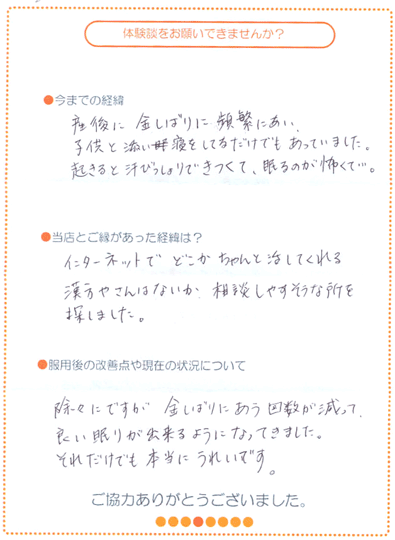 体験談をお願いできませんか？
●今までの経緯
産後に 金しばりに 頻繁にあい、
子供と 添い寝をしてるだけでも あっていました。
起きると汗びっしょりできつくて、眠るのが怖くて…。
●当店とご縁があった経緯は？
インターネットで どこか ちゃんと治してくれる
漢方やさんはないか 相談しやすそうな所を
探しました。
●服用後の改善点や現在の状況について
除々にですが 金しばりにあう 回数が減って、
良い眠りが出来るようになってきました。
それだけでも 本当に うれいです。
ご協力ありがとうございました。